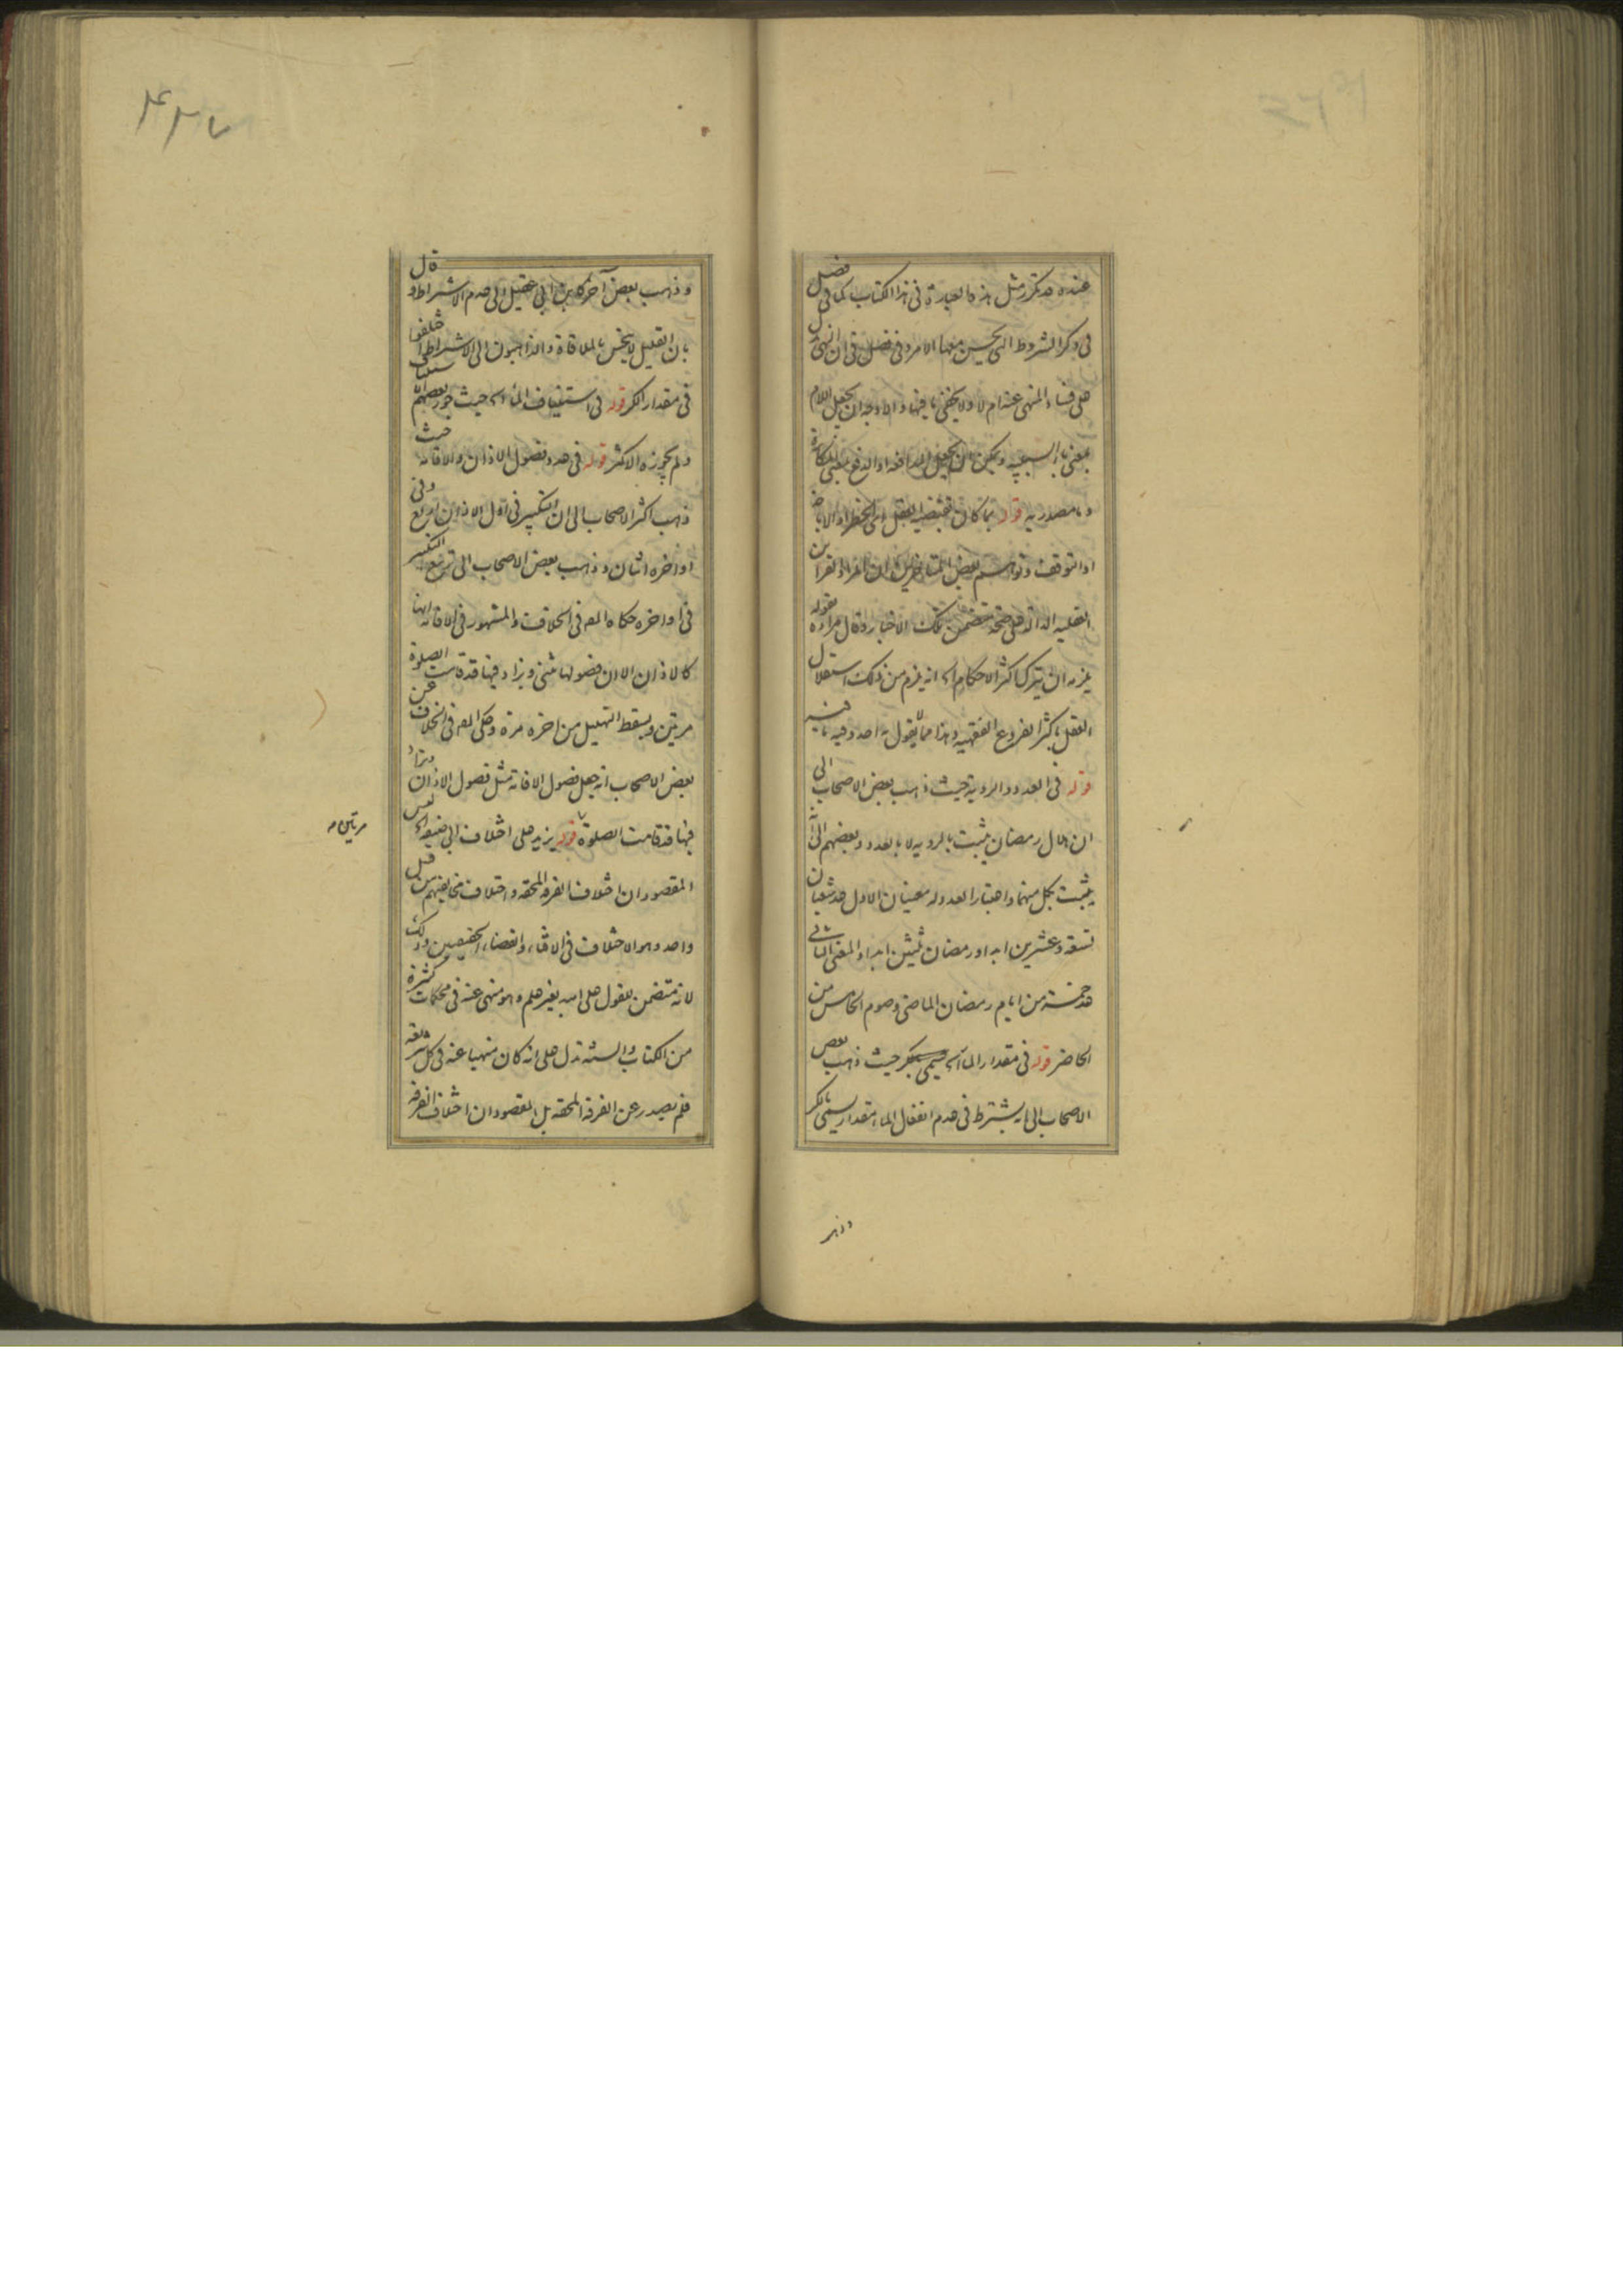 عنده قد تكرر مثل هذه العبارة فى هذا الكتاب كما فى فصل
فى ذكر الشروط التى يحسن معها الامر وفى فصل فى ان النهى يدل
على فساد المنهى عنه ام لا ولا يخفى ما فيها والاوجه ان يجعل اللام
بمعنى باء السببيه ويمكن ان يجعل المدافعه او الدفع بمعنى
وما مصدريه قوله بما كان يقتضيه العقل اى الحظر او الاباحة
او التوقف وتوهم بعض المتاخرين ان المراد القراين
العقليه الدالة على صحة متضمن تلك الاخبار وقال مراده بقوله
يلزمه ان يترك اكثر الاحكام اى انه يلزم من ذلك استقلال
العقل باكثر الفروع الفقهيه وهذا مما لا يقول به احد وفيه ما فيه
قوله فى العدد والرويه حيث ذهب بعض الاصحاب الى
ان هلال رمضان يثبت بالرويه لا بالعدد وبعضهم الى انه
يثبت بكل منهما واعتبار العدد له معنيان الاول عد شعبان
تسعة وعشرين ابدا ورمضان ثلثين ابدا والمعنى الثانى
عد خمسة من ايام رمضان الماضى وصوم الخامس من
الحاضر قوله فى مقدار الماء حيث ذهب بعض
الاصحاب الى انه يشترط فى عدم انفعال الماء مقدار يسمى بالكر
وذهب
۴۳۷
وذهب بعض آخر كابن ابى عقيل الى عدم الاشتراط وقال
بان القليل لا ينجس بالملاقاة والذاهبون الى الاشتراط اختلفوا
فى مقدار الكر قوله فى استيناف الماء حيث جوز بعضهم
ولم يجوزه الاكثر قوله فى عدد فصول الاذان والاقامة حيث
ذهب اكثر الاصحاب الى ان التكبير فى اول الاذان اربع وفى
اواخره اثنان وذهب بعض الاصحاب الى تربيع التكبير
فى اواخره حكاه المص فى الخلاف والمشهور فى الاقامة انها
كالاذان الا ان فصولها مثنى ويزاد فيها قد قامت الصلوة
مرتين ويسقط التهليل من اخره مرة وحكى المص فى الخلاف عن
بعض الاصحاب انه جعل فصول الاقامة مثل فصول الاذان وزاد
فيها قد قامت الصلوة قوله يزيد على اختلاف ابى حنيفه ليس
مرتين صه
المقصود ان اختلاف الفرقه المحقه واختلاف مخالفيهم من قبل
واحد وهو الاختلاف فى الافتاء والقضاء الحقيقيين وذلك
لانه متضمن للقول على الله بغير علم وهو منهى عنه فى محكمات كثيرة
من الكتاب والسنه تدل على انه كان منهيا عنه فى كل شريعه
فلم يصدر عن الفرقه المحقه بل المقصود ان اختلاف الفرقه